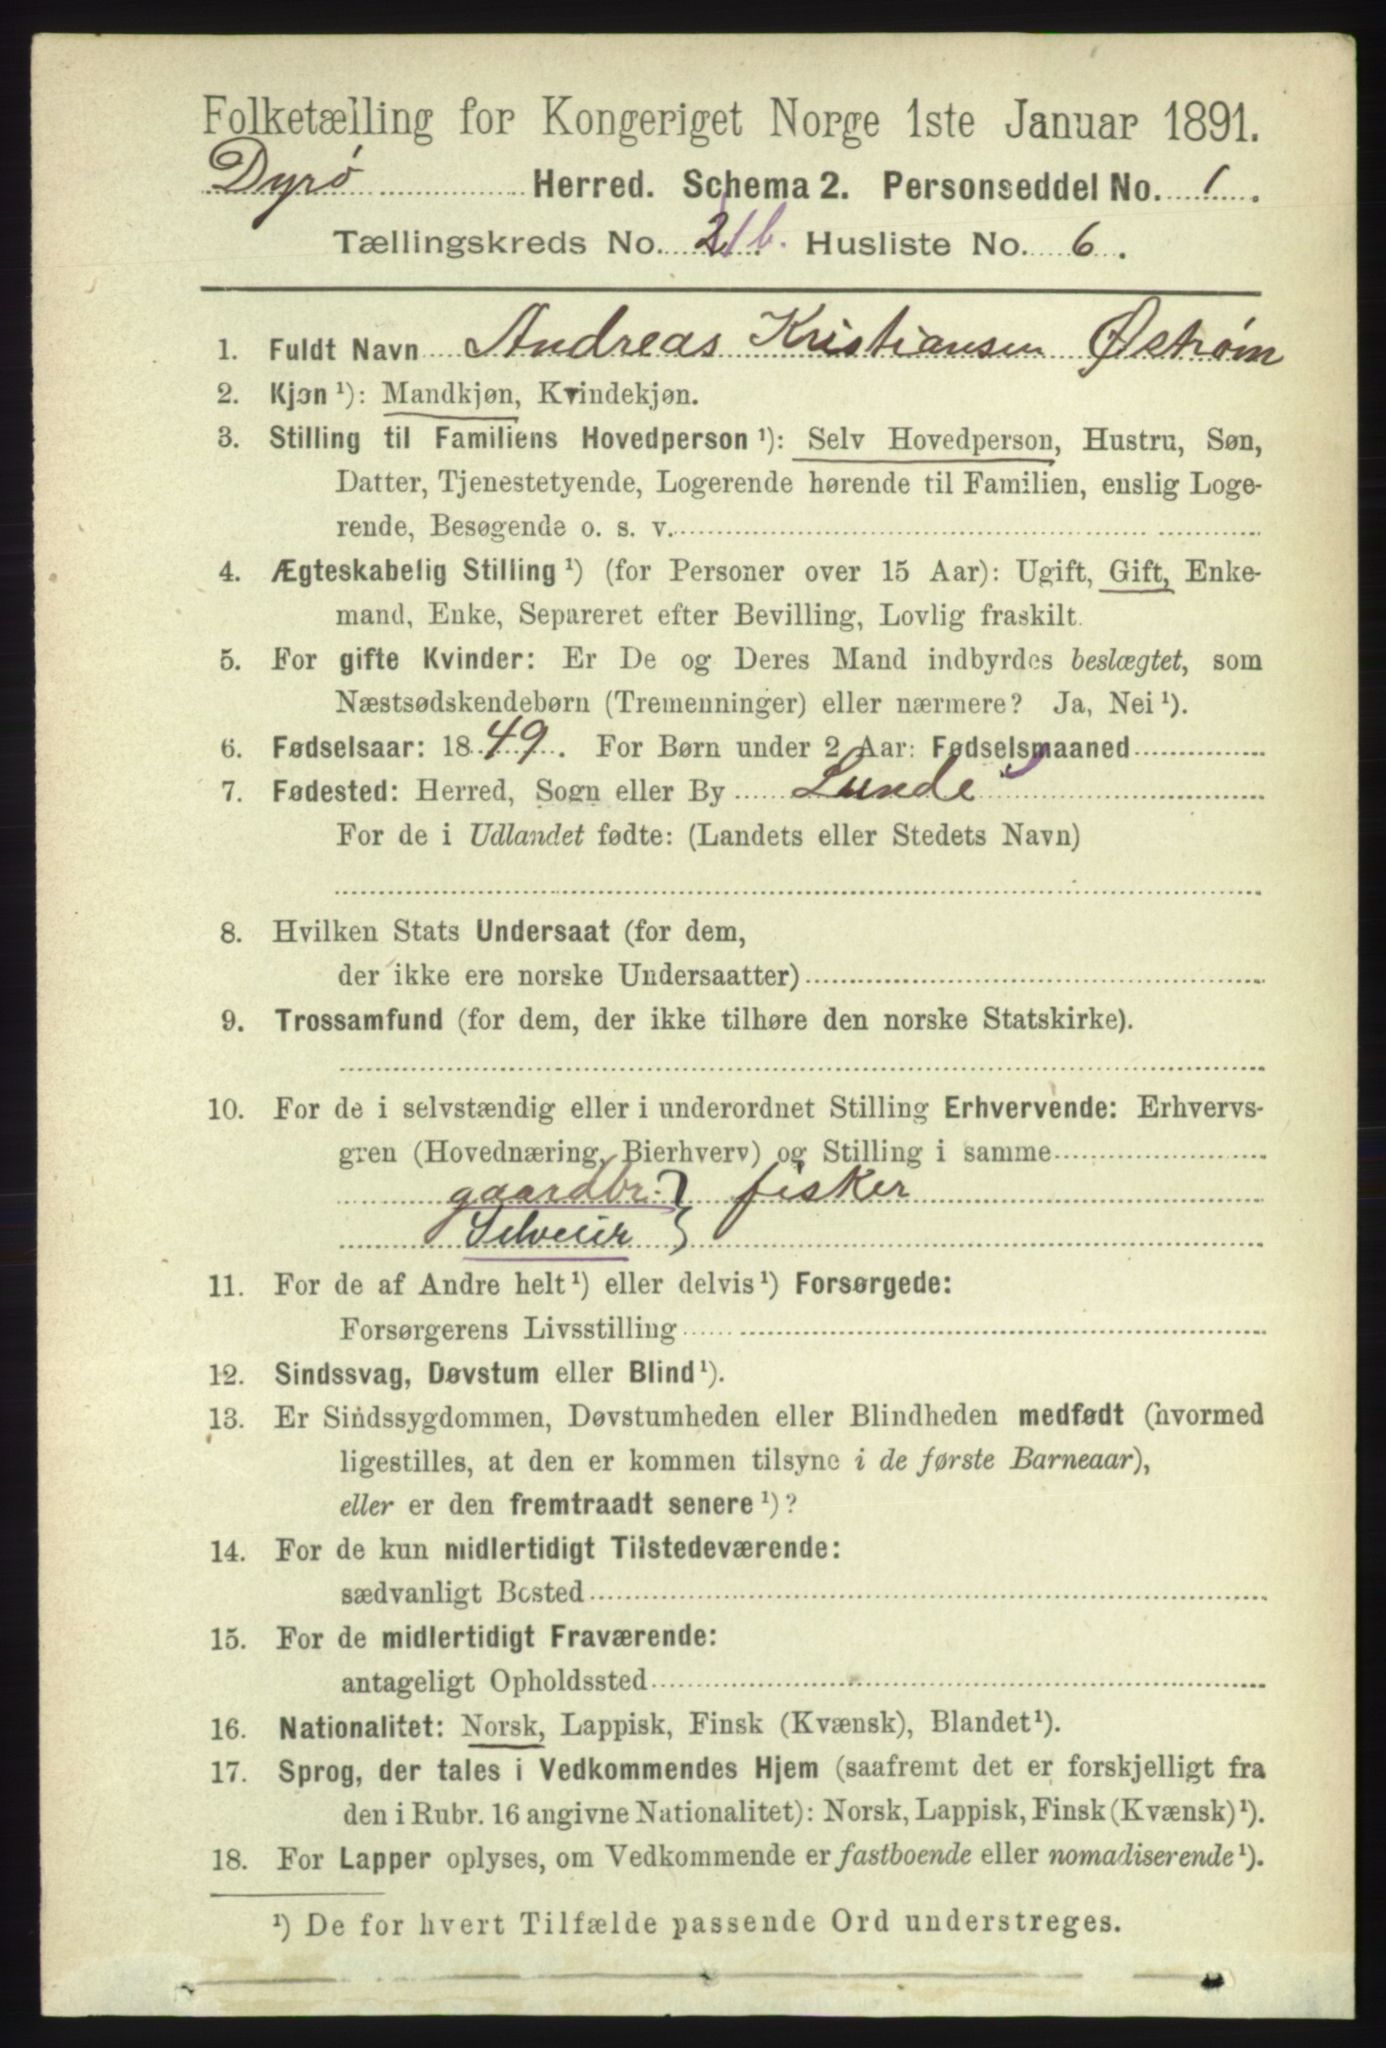 Folketælling for Kongeriget Norge 1ste Januar 1891.
Dyrø Herred. Schema 2. Personseddel No. 1.
Tællingskreds No. 2 b. Husliste No. 6.
1. Fuldt Navn Andreas Kristiansen Østrøm
2. Kjøn ¹): Mandkjøn, Kvindekjøn.
3. Stilling til Familiens Hovedperson ¹): Selv Hovedperson, Hustru, Søn,
Datter, Tjenestetyende, Logerende hørende til Familien, enslig Loge-
rende, Besøgende o. s. v.
4. Ægteskabelig Stilling ¹) (for Personer over 15 Aar): Ugift, Gift, Enke-
mand, Enke, Separeret efter Bevilling, Lovlig fraskilt.
5. For gifte Kvinder: Er De og Deres Mand indbyrdes beslægtet, som
Næstsødskendebørn (Tremenninger) eller nærmere? Ja, Nei ¹).
6. Fødselsaar: 1849. For Børn under 2 Aar: Fødselsmaaned
7. Fødested: Herred, Sogn eller By Lunde
For de i Udlandet fødte: (Landets eller Stedets Navn)
8. Hvilken Stats Undersaat (for dem,
der ikke ere norske Undersaatter)
9. Trossamfund (for dem, der ikke tilhøre den norske Statskirke).
10. For de i selvstændig eller i underordnet Stilling Erhvervende: Erhvervs-
gren (Hovednæring, Bierhverv) og Stilling i samme
gaardbr: } fisker
Selveier
11. For de af Andre helt ¹) eller delvis ¹) Forsørgede:
Forsørgerens Livsstilling
12. Sindssvag, Døvstum eller Blind ¹).
13. Er Sindssygdommen, Døvstumheden eller Blindheden medfødt (hvormed
ligestilles, at den er kommen tilsyne i de første Barneaar),
eller er den fremtraadt senere ¹)?
14. For de kun midlertidigt Tilstedeværende:
sædvanligt Bosted
15. For de midlertidigt Fraværende:
antageligt Opholdssted
16. Nationalitet: Norsk, Lappisk, Finsk (Kvænsk), Blandet ¹).
17. Sprog, der tales i Vedkommendes Hjem (saafremt det er forskjelligt fra
den i Rubr. 16 angivne Nationalitet): Norsk, Lappisk, Finsk (Kvænsk) ¹).
18. For Lapper oplyses, om Vedkommende er fastboende eller nomadiserende ¹).
¹) De for hvert Tilfælde passende Ord understreges.